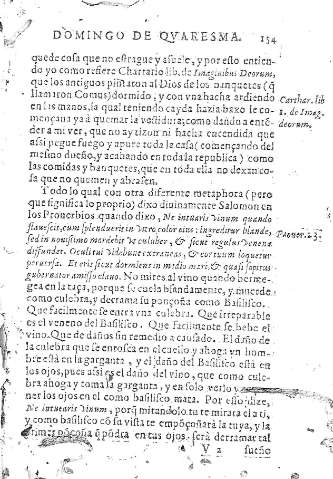 DOMINGO DE QVARESMA. 154
quede cosa que no estrague y assuele, y por esto entien-
do yo como refiere Chartario lib. de Imaginibus Deorum,
que los antiguos pintaron al Dios de los banquetes (q̃
llamaron Comus) dormido, y con vna hacha ardiendo
en las manos, la qual teniendo cayda hazia baxo le co-
mençaua ya à quemar la vestidura; como dando a enté-
der a mi ver, que no ay tizon ni hacha encendida que
assi pegue fuego y apure toda la casa (començando del
mesmo dueño, y acabando en toda la republica) como
las comidas y banquetes, que en toda ella no dexan co-
sa que no quemen y abrasen.
Carthar. lib
de Imag.
deorum.
Todo lo qual con otra diferente metaphora (pero
que significa lo proprio) dixo diuinamente Salomon en
los Prouerbios quando dixo, Ne intuaris vinum quando
flauescit, cum splenduerit in vitro color eius: ingreditur blande,
sed in nouissimo mordebit vt coluber, & sicut regulus venena
diffundet. Oculi tui videbunt extraneas, & cor tuum loquetur
peruersa. Et eris sicut dormiens in medio mari, & quasi sopitus
gubernator amisso clauo. No mires al vino quando berme-
gea en la taça, porque se cuela blandamente, y muerde
como culebra, y derrama su ponçoña como Basilisco.
Que facilmente se entra vna culebra. Que irreparable
es el veneno del Basilisco. Que facilmente se bebe el
vino. Que de daños sin remedio a causado. El daño de
la culebra que se enrosca en el cuello y ahoga vn hom-
bre està en la garganta, y el daño del Basilisco està en
los ojos, pues assi es el daño del vino, que como cule-
bra ahoga y toma la garganta, y en solo verlo y
ner los ojos en el como basilisco mata. Por esso dize,
Ne intuearis vinum, porq̃ mirandolo tu te mirara el a ti,
y como basilisco cõ su vista te empõçoñarà la tuya, y la
põçoña q̃ põdra en tus ojos, serà derramar tal
Prouer. 23.
V 2 sueño